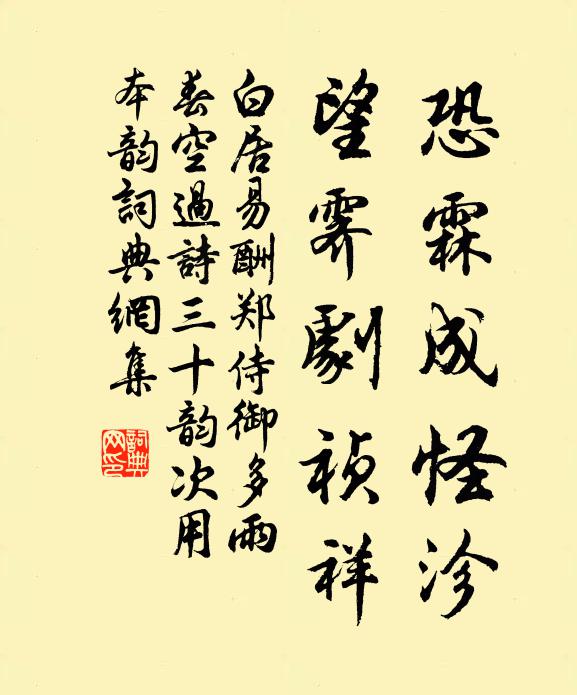 恐霖成怪沴
望霁劇祯祥
白居易酬郑侍御多雨
春空過詩三十韵次用
本韵詞典網集
詞典网印